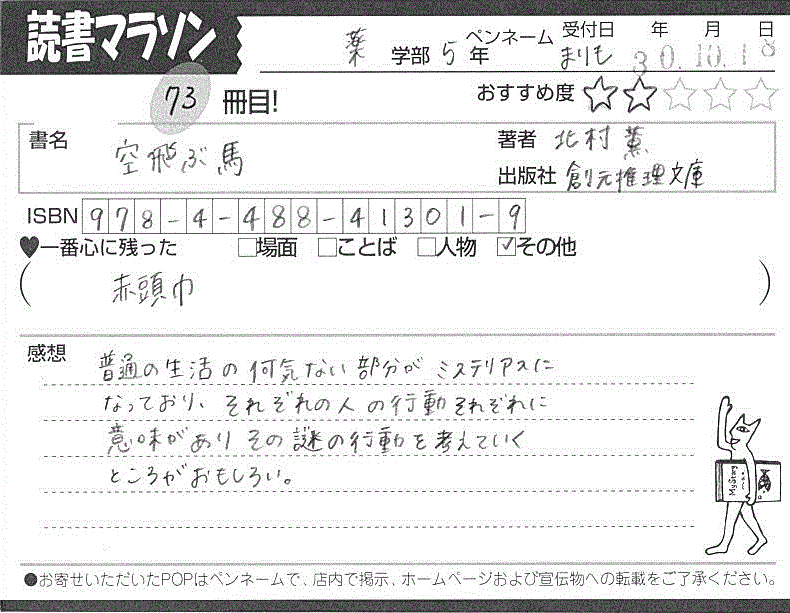 読書マラソン
薬 学部 5 年 ペンネーム まりも 受付日 年 月 日
30.10.18
73 冊目! おすすめ度 ☆☆☆☆☆
書名 空飛ぶ馬 著者 北村 薫
出版社 創元推理文庫
ISBN 978-4-488-41301-9
♥一番心に残った □場面 □ことば □人物 ☑その他
( 赤頭巾 )
感想
普通の生活の何気ない部分がミステリアスに
なっており、それぞれの人の行動それぞれに
意味がありその謎の行動を考えていく
ところがおもしろい。
MyStory
●お寄せいただいたPOPはペンネームで、店内で掲示、ホームページおよび宣伝物への転載をご了承ください。